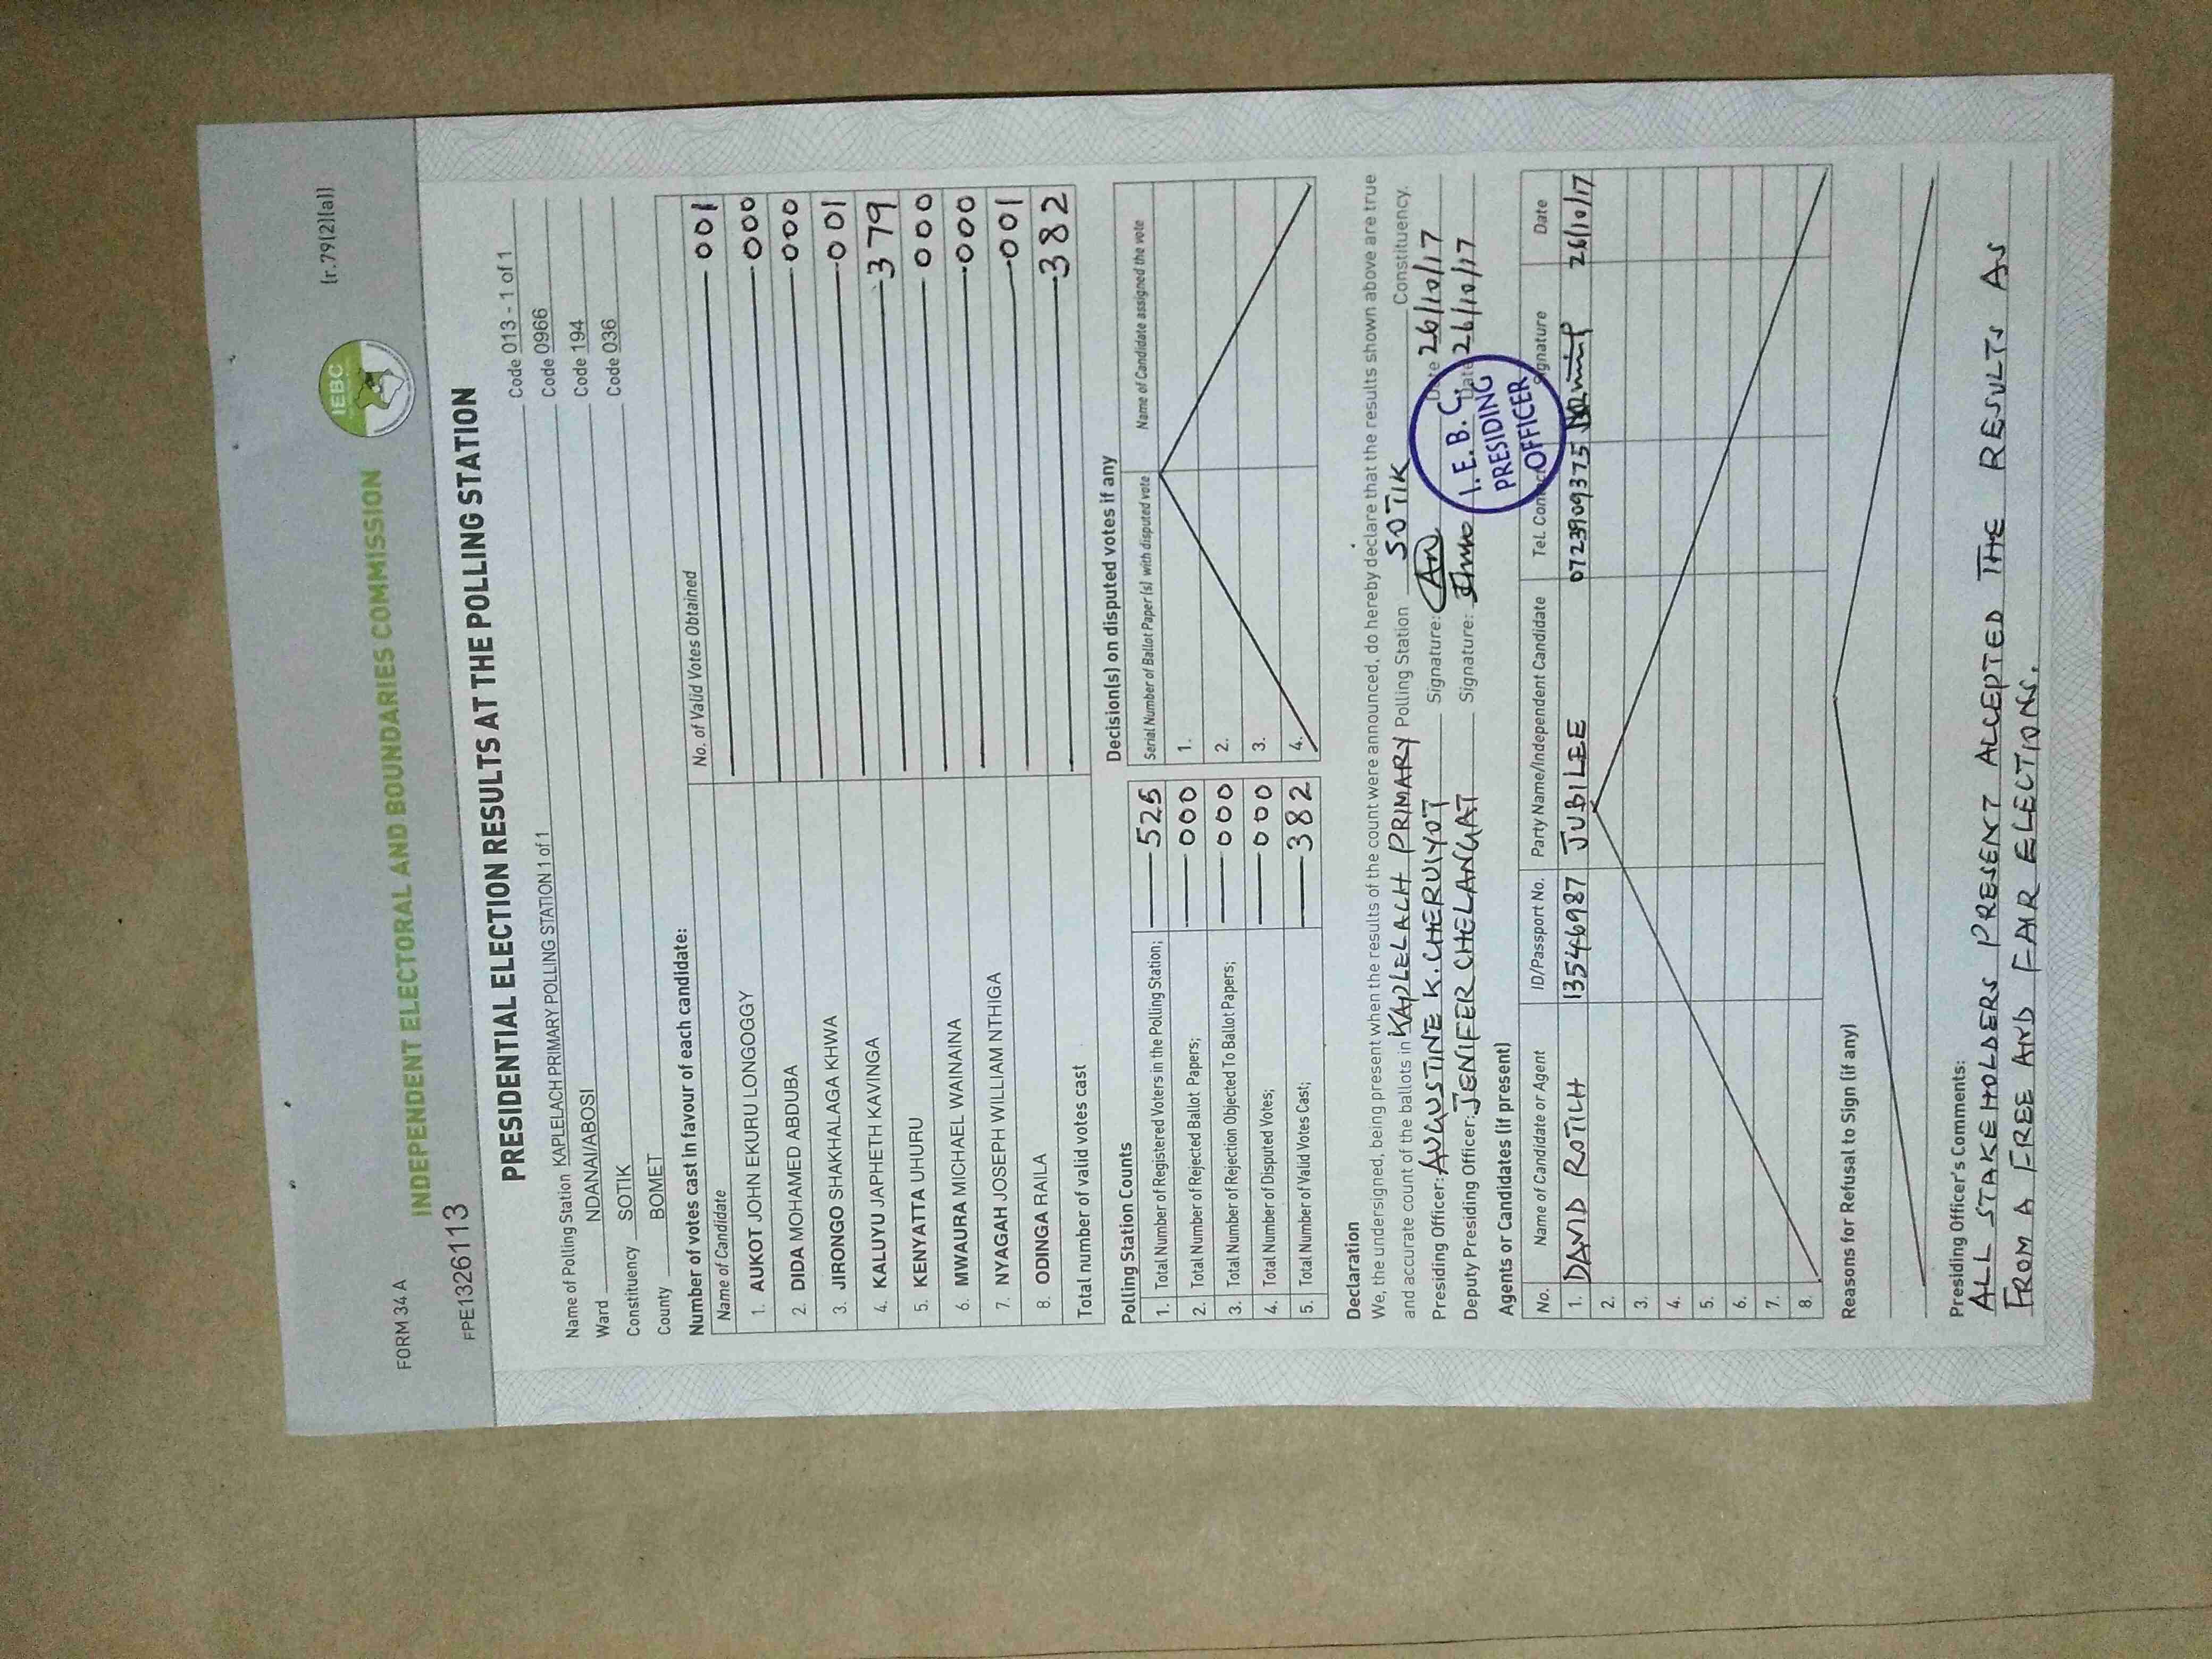 FORM 34 A
(r.79(2)(a))
IEBC
INDEPENDENT ELECTORAL AND BOUNDARIES COMMISSION
FPE1326113
PRESIDENTIAL ELECTION RESULTS AT THE POLLING STATION
Name of Polling Station KAPLELACH PRIMARY POLLING STATION 1 of 1 Code 013 - 1 of 1
Ward NDANAI/ABOSI Code 0966
Constituency SOTIK Code 194
County BOMET Code 036
Number of votes cast in favour of each candidate:
Name of Candidate No. of Valid Votes Obtained
1. AUKOT JOHN EKURU LONGOGGY 001
2. DIDA MOHAMED ABDUBA 000
3. JIRONGO SHAKHALAGA KHWA 000
4. KALUYU JAPHETH KAVINGA 001
5. KENYATTA UHURU 379
6. MWAURA MICHAEL WAINAINA 000
7. NYAGAH JOSEPH WILLIAM NTHIGA 000
8. ODINGA RAILA 001
Total number of valid votes cast 382
Polling Station Counts
1. Total Number of Registered Voters in the Polling Station; 525
2. Total Number of Rejected Ballot Papers; 000
3. Total Number of Rejection Objected To Ballot Papers; 000
4. Total Number of Disputed Votes; 000
5. Total Number of Valid Votes Cast; 382
Decision(s) on disputed votes if any
Serial Number of Ballot Paper (s) with disputed vote Name of Candidate assigned the vote
1.
2.
3.
4.
Declaration
We, the undersigned, being present when the results of the count were announced, do hereby declare that the results shown above are true
and accurate count of the ballots in KAPLELACH PRIMARY Polling Station SOTIK Constituency.
Presiding Officer: AUGUSTINE K. CHERUIYOT Signature: Date 26/10/17
Deputy Presiding Officer: JENIFER CHELANGAT Signature: Date 26/10/17
I.E.B.C.
PRESIDING
OFFICER
Agents or Candidates (if present)
No. Name of Candidate or Agent ID/Passport No. Party Name/Independent Candidate Tel. Contact Signature Date
1. DAVID ROTICH 13546987 JUBILEE 0723909375 26/10/17
2.
3.
4.
5.
6.
7.
8.
Reasons for Refusal to Sign (if any)
Presiding Officer's Comments:
ALL STAKEHOLDERS PRESENT ACCEPTED THE RESULTS AS
FROM A FREE AND FAIR ELECTIONS.